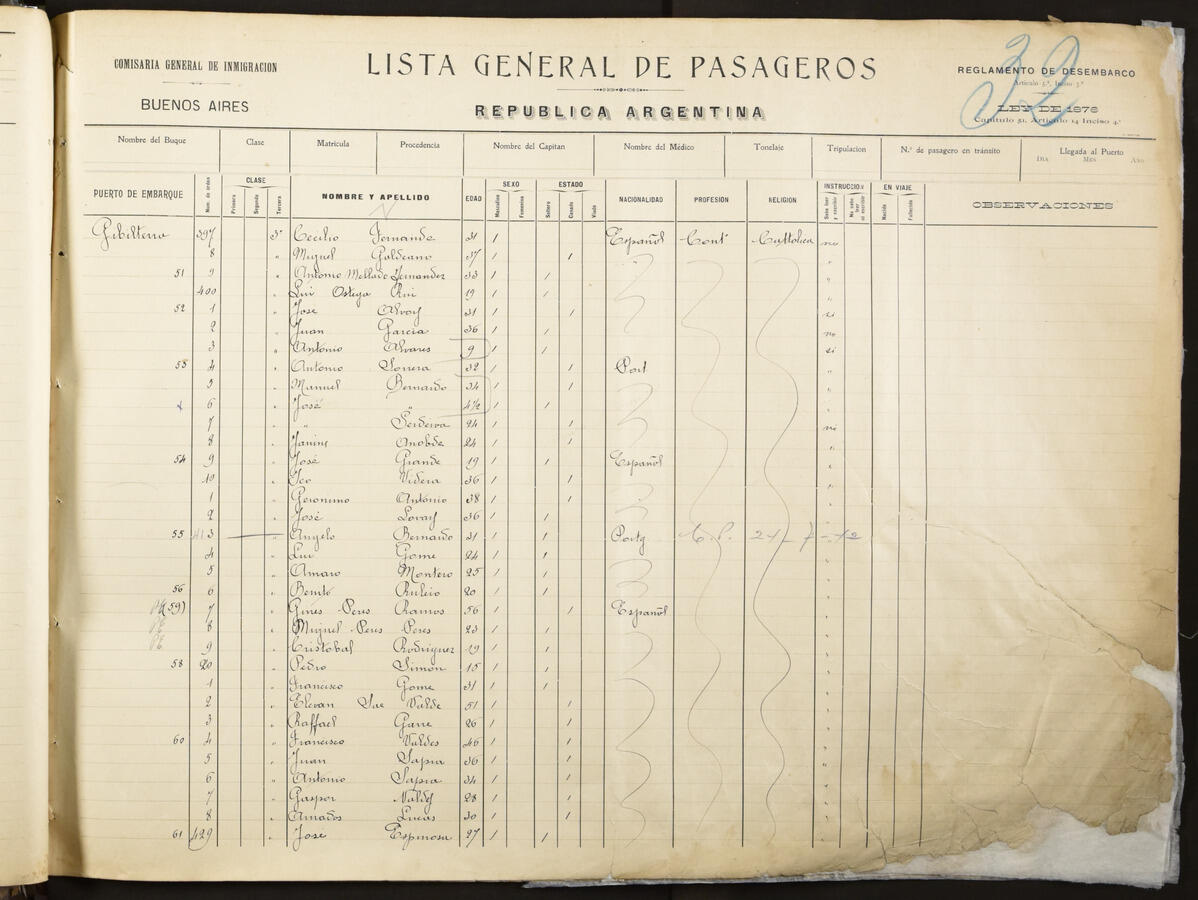 COMISARIA GENERAL DE INMIGRACION
BUENOS AIRES
LISTA GENERAL DE PASAGEROS
REPUBLICA ARGENTINA
32
REGLAMENTO DE DESEMBARCO
Artículo 5.º, Inciso 3.º
LEY DE 1876
Capítulo 51, Artículo 14 Inciso 4.º
Nombre del Buque Clase Matricula Procedencia Nombre del Capitan Nombre del Médico Tonelaje Tripulacion N.º de pasagero en tránsito Llegada al Puerto
DIA MES AÑO
PUERTO DE EMBARQUE Num. de orden CLASE Primera Segunda Tercera NOMBRE Y APELLIDO EDAD SEXO Masculino Femenino ESTADO Soltero Casado Viudo NACIONALIDAD PROFESIÓN RELIGION INSTRUCCION Sabe leer y escribir No sabe leer ni escribir EN VIAJE Nacido Fallecido OBSERVACIONES
Gibilterra 397 3ª Cecilio Fernande 31 / Español Cont Cattolica no
8 " Miguel Galdeano 37 / / "
51 9 " Antonio Mellado Fernandez 33 / / "
400 " Lui Ostega Rui 19 / / "
52 1 " Jose Alvoy 31 / / si
2 " Juan Garcia 36 / / no
3 " Antonio Alvares 9 / / si
53 4 " Antonio Sorrera 32 / / Port "
5 " Manuel Bernardo 34 / / "
6 " José " 4½ / / "
7 " " Serdeira 24 / / no
8 " Janine 24 / / "
54 9 " José Grande 19 / / Español "
10 " Videra 36 / / "
1 " Geronimo Antonio 38 / / "
2 " José Loray 36 / / "
55 413 " Angelo Bernardo 31 / / Portg C.P. 21-7-12
4 " Lui Gome 24 / / "
5 " Amaro Montero 25 / / "
56 6 " Benito Ruleio 20 / / "
(59) 7 " Gines Peres Ramos 56 / / Español "
8 " Miguel Peres Peres 23 / / "
9 " Cristobal Rodriguez 19 / / "
58 20 " Pedro Simon 15 / / "
1 " Francisco Gome 31 / / "
2 " Elevan Sae Valde 51 / / "
3 " Raffael Garre 26 / / "
60 4 " Francisco Valdes 46 / / "
5 " Juan Sapia 36 / / "
6 " Antonio Sapia 34 / / "
7 " Gaspor Valdy 28 / / "
8 " Amados Lucas 30 / / "
61 429 " José Espinosa 27 / /